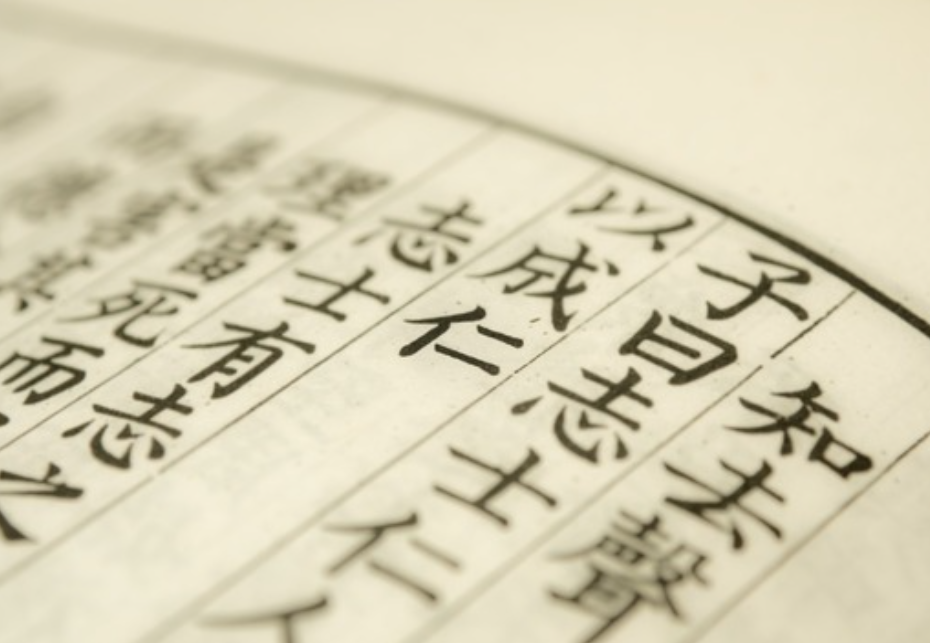 知去聲
子曰志士仁人
以成仁
志士有志之
理當死而
是害其